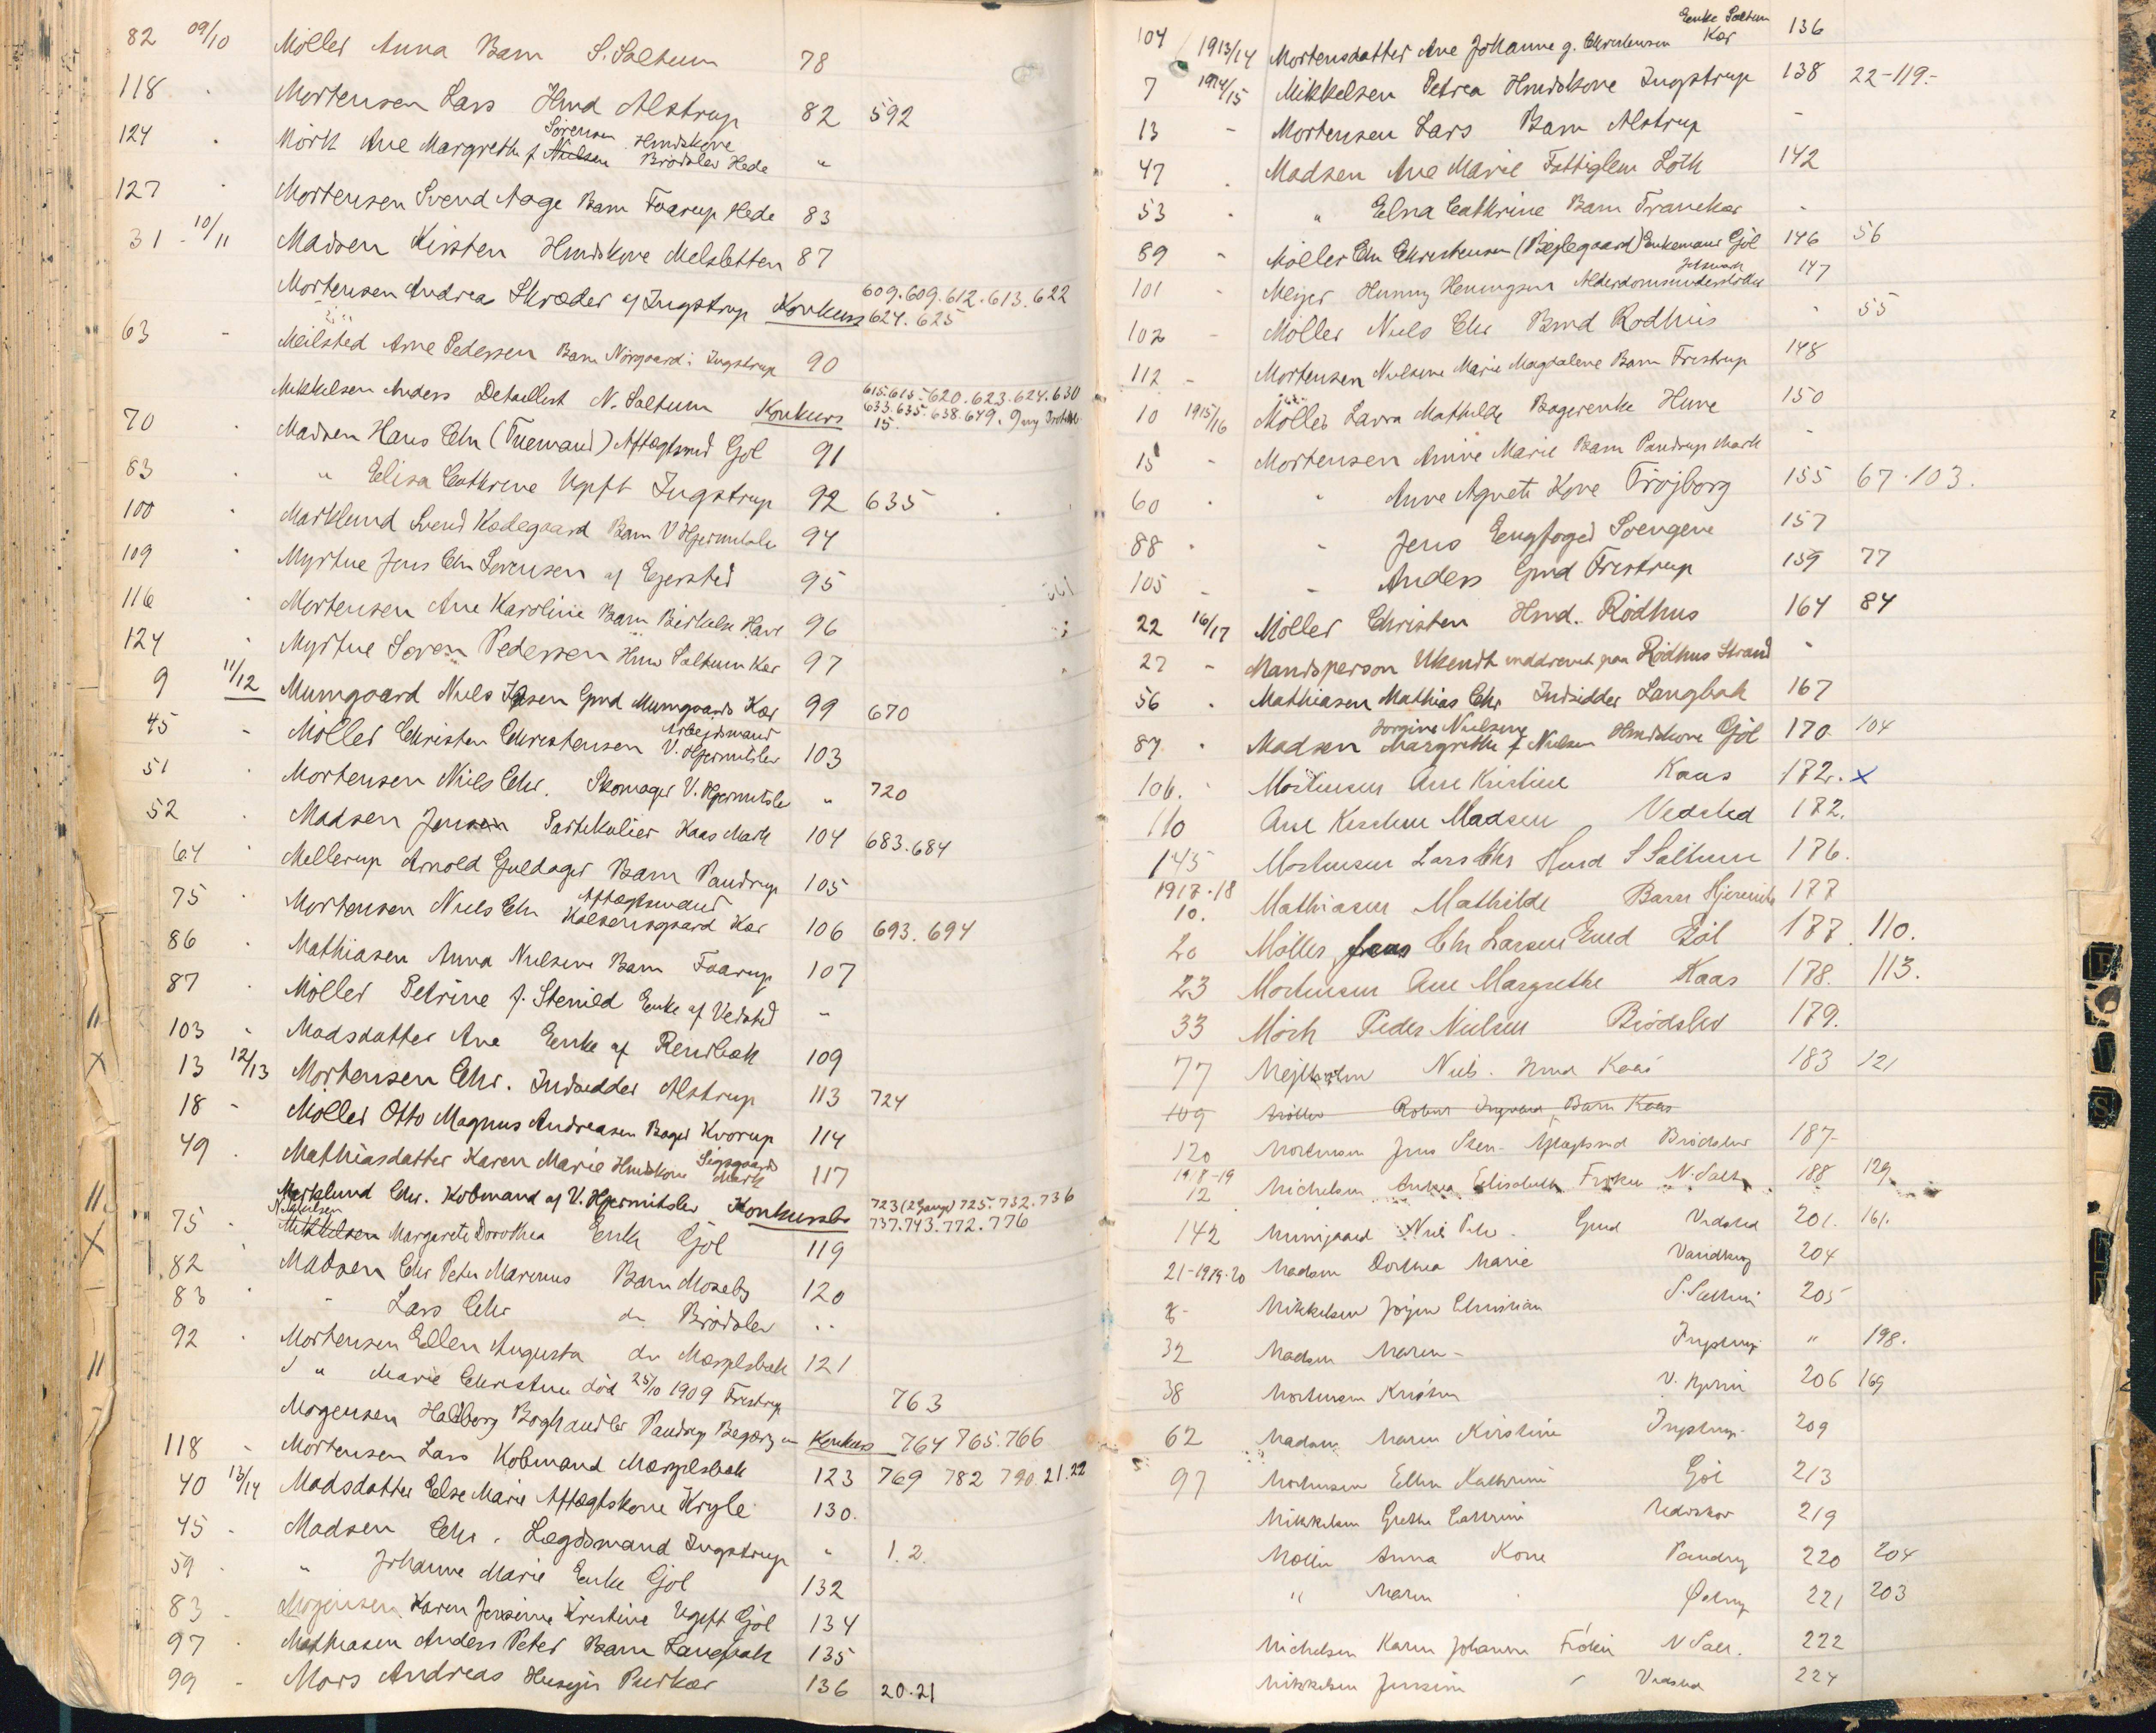 82 09/10 Möller Anna Barn S. Saltum 78
118 . Mortensen Lars Hmd Alstrup 82 592
124 . Mörk Ane Margrethe f. Nielsen Sörensen Hmdskone Brödslev Hede "
127 . Mortensen Svend Aage Barn Faarup Hede 83
31 - 10/11 Madsen Kirsten Hmdskone Melsletten 87
Mortensen Andreas Skræder af Ingstrup Konkurs 609. 609. 612. 613. 622
624. 625
63 - Meilsted Arne Pedersen Barn Nörgaard i Ingstrup 90
Mikkelsen Anders Detaillist N. Saltum Konkurs 615. 615. 620. 623. 624. 630
633. 635. 638. 649. 9 ny Protokol
15.
70 . Madsen Hans Chr (Tuemand) Aftægtsmd Gol 91
83 . " Elisa Cathrine Ugift Ingstrup 92 635
100 . Marklund Svend Kodegaard Barn V Hjermitslev 94
109 . Myrtue Jens Chr Sorensen af Ejersted 95
116 . Mortensen Ane Karoline Barn Birkelse Have 96
124 . Myrtue Soren Pedersen Hmd Saltum Kær 97
9 11/12 Mumgaard Niels Ibsen Gmd Mumgaards Kær 99 670
45 - Möller Christen Christensen Arbejdsmand V. Hjermitslev 103
51 . Mortensen Niels Chr. Skomager V. Hjermitslev " 720
52 . Madsen Jensen Partikulier Kaas Mark 104 683. 684
64 . Mellerup Arnold Guldager Barn Pandrup 105
75 . Mortensen Niels Chr Aftægtsmand Kalsensgaard Kær 106 693. 694
86 . Mathiasen Anna Nielsine Barn Faarup 107
87 . Möller Petrine f. Stenild Enke af Vedsted "
103 " Madsdatter Ane Enke af Rendbæk 109
13 12/13 Mortensen Chr. Indsidder Alstrup 113 724
18 - Möller Otto Magnus Andreasen Bager Kvorup 114
49 . Mathiasdatter Karen Marie Hmdskone Sigsgaards Mark 117
Marklund Chr. Købmand af V. Hjermitslev Konkursbo 723 (2 Gange) 725. 732. 736
737. 743. 772. 776
75 - Mikkelsen Margrete Dorothea Enke Gjöl 119
82 . Madsen Chr Peter Marinus Barn Moseby 120
83 . " Lars Chr do Brödslev "
92 . Mortensen Ellen Augusta do Mærgelsbæk 121
" Marie Christine död 25/10 1909 Fristrup 763
Mogensen Halborg Boghandler Pandrup Begæring om Konkurs 764 765. 766
118 - Mortensen Lars Købmand Mærgelsbæk 123 769 782 790. 21. 22
40 13/14 Madsdatter Else Marie Aftægtskone Kryle 130.
45 - Madsen Chr. Lægdsmand Ingstrup " 1. 2.
59 . " Johanne Marie Enke Gjöl 132
83 - Mogensen Karen Jensine Kristine Ugift Gjöl 134
97 . Mathiasen Anders Peter Barn Langbak 135
99 - Mors Andreas Husejer Purkær 136 20. 21
104 1913/14 Mortensdatter Ane Johanne g. Christensen Enke Saltum Kær 136
7 1914/15 Mikkelsen Petrea Hmdskone Ingstrup 138 22-119.-
13 - Mortensen Lars Barn Alstrup -
47 . Madsen Ane Marie Fattiglem Loth 142
53 . " Elna Cathrine Barn Tranekær -
89 - Möller Chr Christensen (Bejlegaard) Enkemand Gjöl 146 56
101 - Meyer Henningsen Alderdomsunderstöttet 147
102 - Möller Niels Chr Bmd Rodhus - 55
112 - Mortensen Nielsine Marie Magdalene Barn Fristrup 148
10 1915/16 Möller Laura Mathilde Bagerenke Hune 150
15 - Mortensen Anine Marie Barn Pandrup Mark -
60 . " Anne Agnete Kone Fröjborg 155 67. 103.
88 . " Jens Engfoged Soengene 157
105 - " Anders Gmd Fristrup 159 77
22 16/17 Möller Christen Hmd. Rödhus 164 84
27 - Mandsperson Ukendt inddrevet paa Rödhus Strand -
56 . Mathiasen Mathias Chr Indsidder Langbak 167
87 . Madsen Jorgine Nielsine Margrethe f Nielsen Hmdskone Gjöl 170 104
106. . Mortensen Ane Kristine Kaas 172. x
110 Ane Kirstine Madsen Vedsted 172.
145 Mortensen Lars Chr Hmd S Saltum 176.
1917-18
10. Mathiasen Mathilde Barn Hjermits 177
20 Möller Jens Chr Larsen Gmd Gjöl 177. 110.
23 Mortensen Ane Margrethe Kaas 178. 113.
33 Mörk Peder Nielsen Brödslev 179.
77 Mejlholm Niels. Hmd Kaas 183 121
109 Möller Robert Ingvard Barn Kaas
120 Mortensen Jens Sten- Aftægtsmd Brödslev 187-
1918-19
12 Michelsen Andrea Elisabeth Frøken N. Salt. 188 129
142 Mumgaard Niels Peter. Gmd Vedsted 201. 161.
21-1919-20 Madsen Dorthea Marie Vandkrog 204
8- Mikkelsen Jörgen Christian S. Saltum 205
32 Madsen Maren - Ingstrup " 198.
38 Mortensen Kristen V. Hjerm 206 169
62 Madsen Maren Kirstine Ingstrup. 209
97 Mortensen Ellen Kathrine Gjöl 213
Mikkelsen Grethe Cathrine Vedsted 219
Möller Anna Kone Pandrup 220 204
" Maren 221 203
Michelsen Karen Johanne Frøken N Salt. 222
Mikkelsen Jensine Vedsted 224